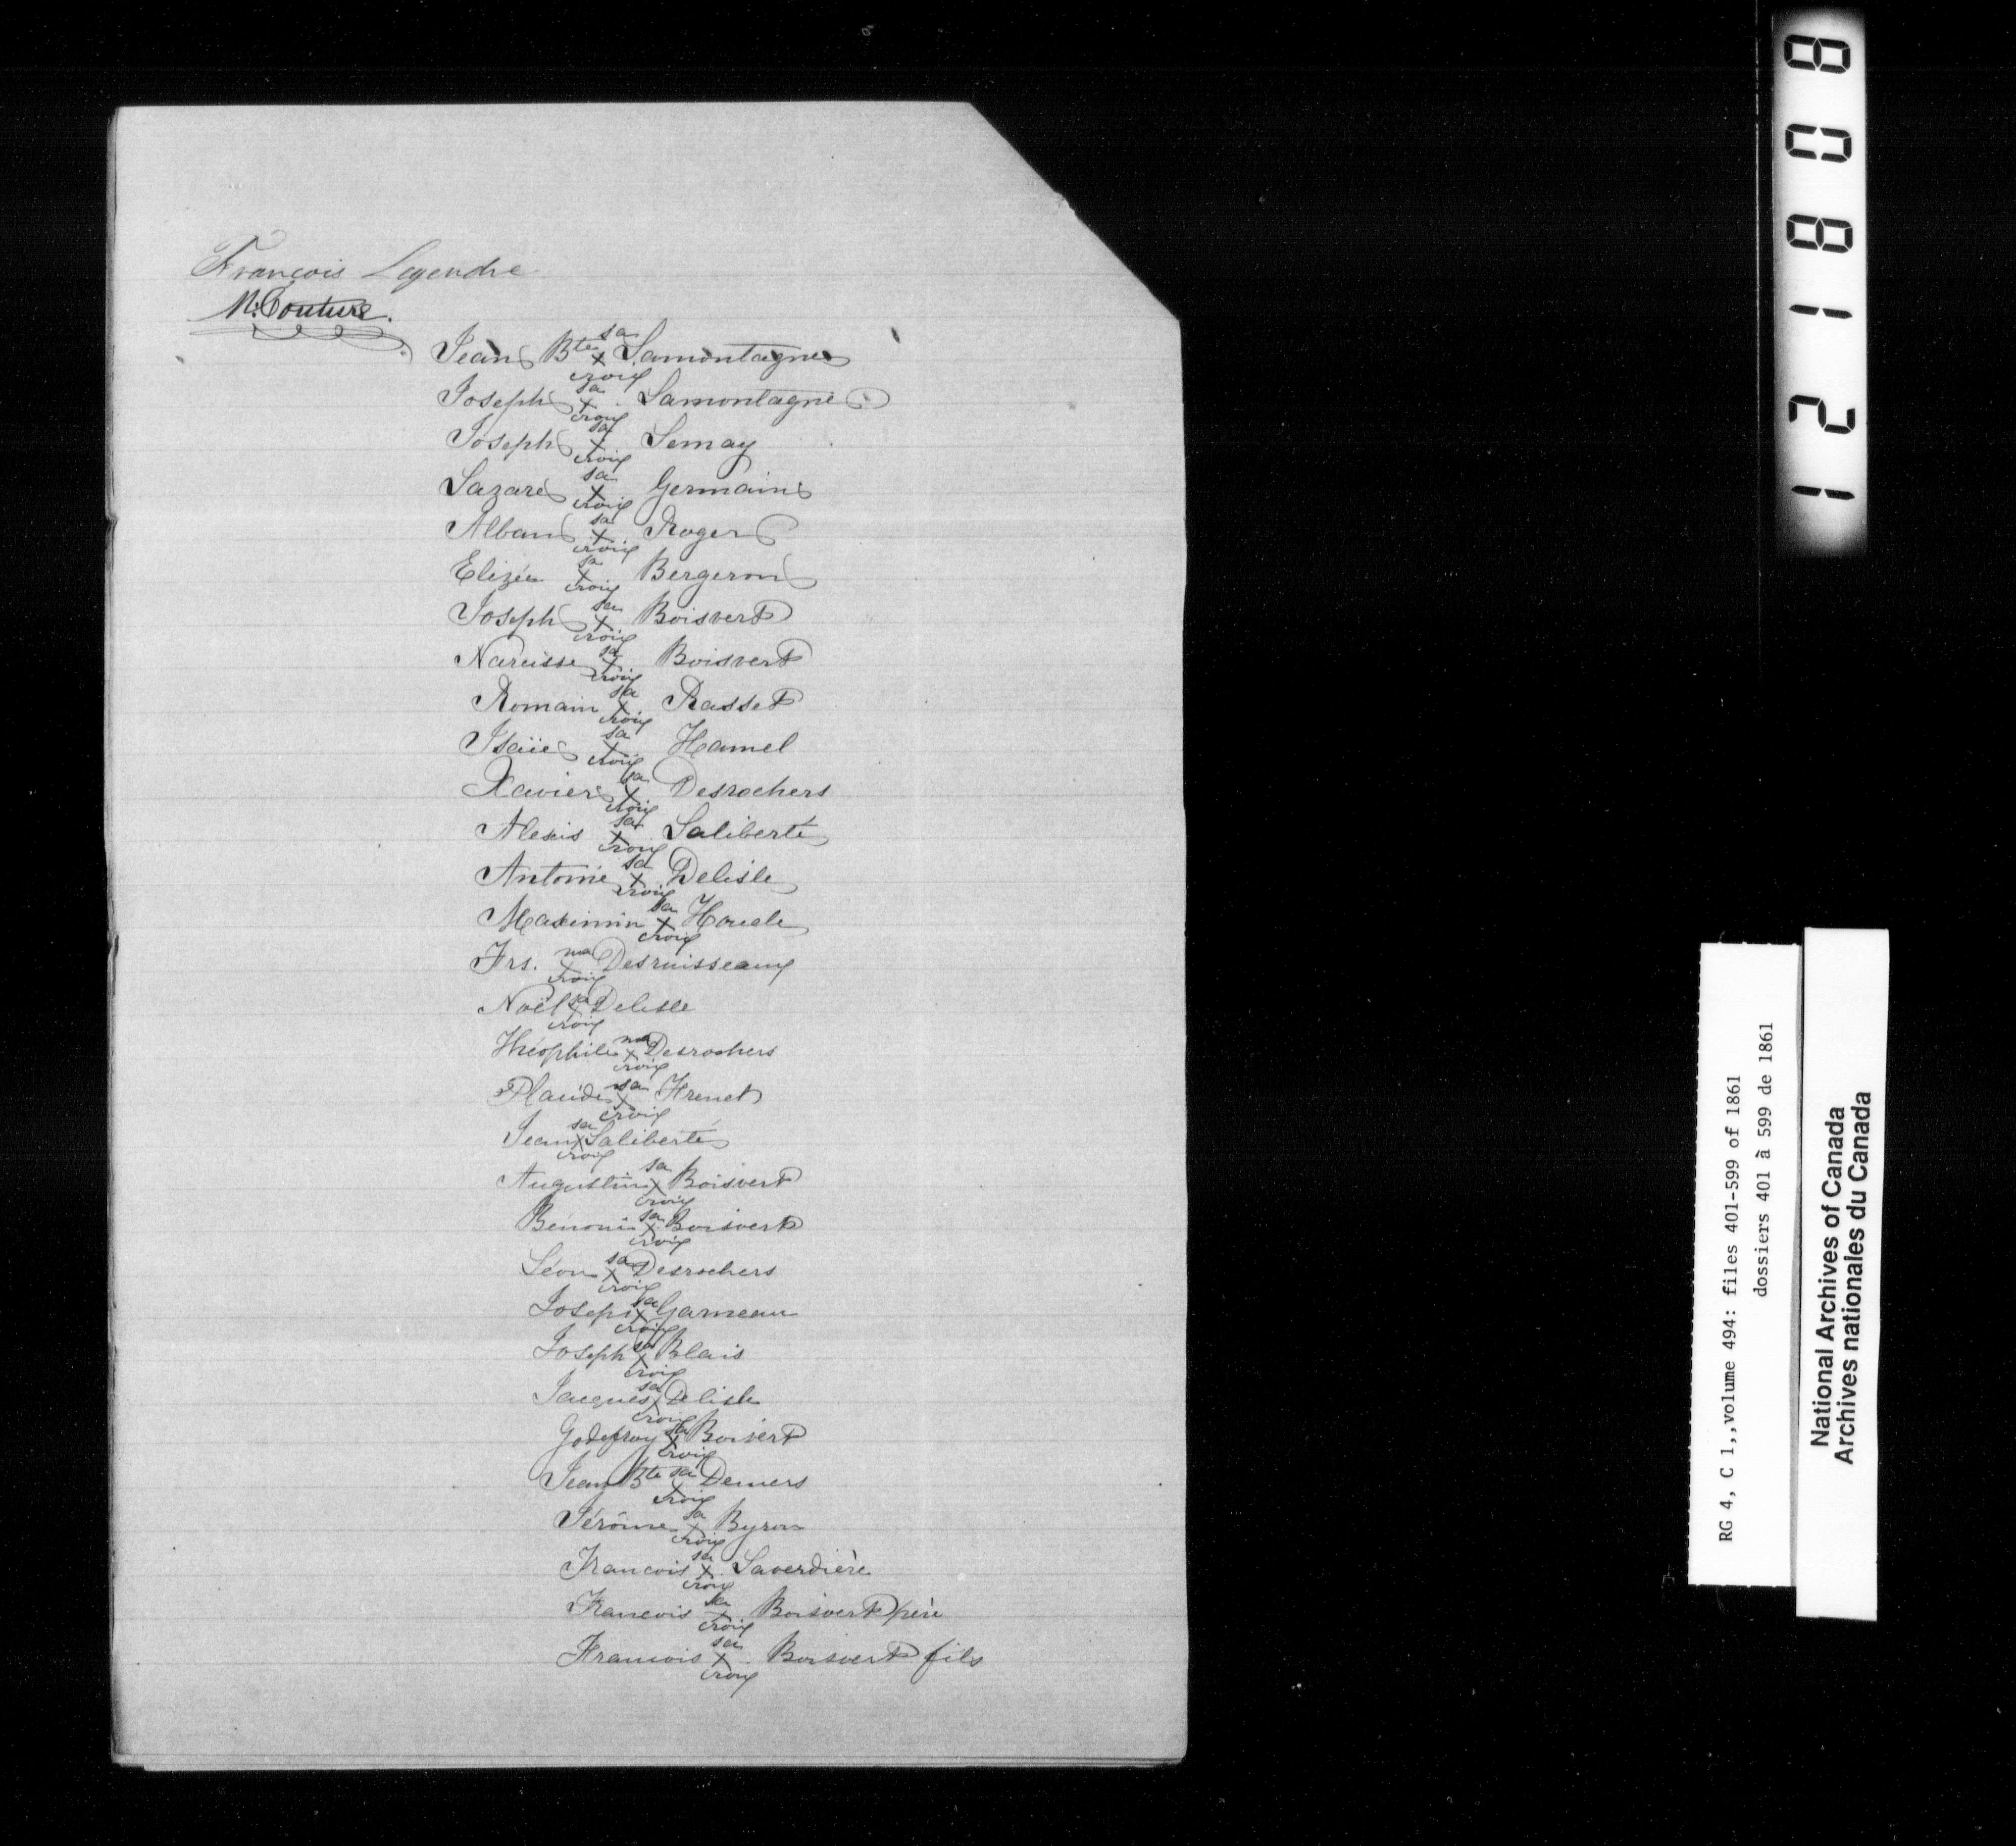 François Legendre
N. Couture.
Jean Bte sa x croix Lamontagne
Joseph sa x croix Lamontagne
Joseph sa x croix Lemay
Lazare sa x croix Germain
Alban sa x croix Roger
Elizée sa x croix Bergeron
Joseph sa x croix Boisvert
Narcisse sa x croix Boisvert
Romain sa x croix Rasset
Isaïe sa x croix Hamel
Xavier sa x croix Desrochers
Alexis sa x croix Laliberté
Antoine sa x croix Delisle
Maximin sa x croix Houde
Frs. ma x croix Desruisseaux
Noël sa x croix Delisle
Théophile ma x croix Desrochers
Plaside sa x croix Frenet
Jean sa x croix Laliberté
Augustin sa x croix Boisvert
Bénoni sa x croix Boisvert
Léon sa x croix Desrochers
Joseph sa x croix Garneau
Joseph sa x croix Blais
Jacques sa x croix Delisle
Godefroy sa x croix Boisvert
Jean Bte sa x croix Demers
Jérôme sa x croix Byron
Francois sa x croix Laverdière
Francois sa x croix Boisvert père
Francois sa x croix Boisvert fils
121808
RG 4, C 1,,volume 494: files 401-599 of 1861
dossiers 401 à 599 de 1861
National Archives of Canada
Archives nationales du Canada